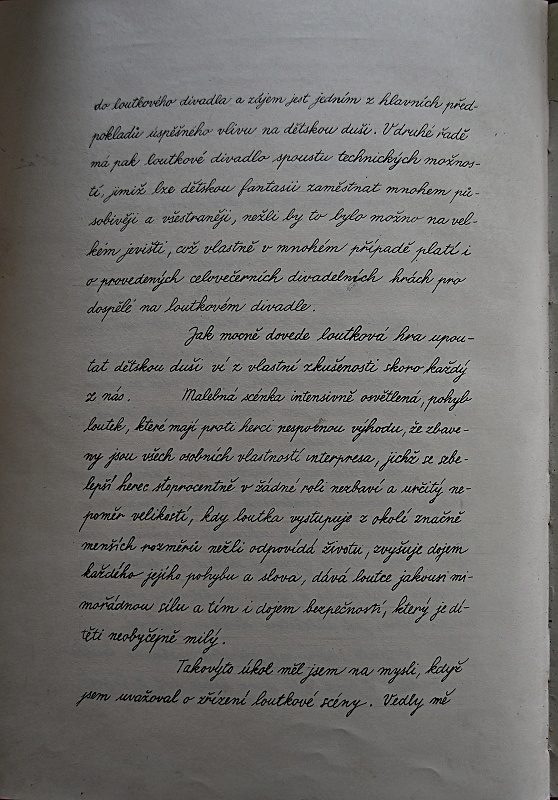 do loutkového divadla a zájem jest jedním z hlavních před-
pokladů úspěšného vlivu na dětskou duši. V druhé řadě
má pak loutkové divadlo spoustu technických možnos-
tí, jimiž lze dětskou fantasii zaměstnat mnohem pů-
sobivěji a všestraněji, nežli by to bylo možno na vel-
kém jevišti, což vlastně v mnohém případě platí i
o provedených celovečerních divadelních hrách pro
dospělé na loutkovém divadle.
Jak mocně dovede loutková hra upou-
tat dětskou duši ví z vlastní zkušenosti skoro každý
z nás. Malebná scénka intensivně osvětlená, pohyb
loutek, které mají proti herci nespornou výhodu, že zbave-
ny jsou všech osobních vlastností interpresa, jichž se sebe-
lepší herec stoprocentně v žádné roli nezbaví a určitý ne-
poměr velikostí, kdy loutka vystupuje z okolí značně
menších rozměrů nežli odpovídá životu, zvyšuje dojem
každého jejího pohybu a slova, dává loutce jakousi mi-
mořádnou sílu a tím i dojem bezpečnosti, který je dí-
těti neobyčejně milý.
Takovýto úkol měl jsem na mysli, když
jsem uvažoval o zřízení loutkové scény. Vedly mě